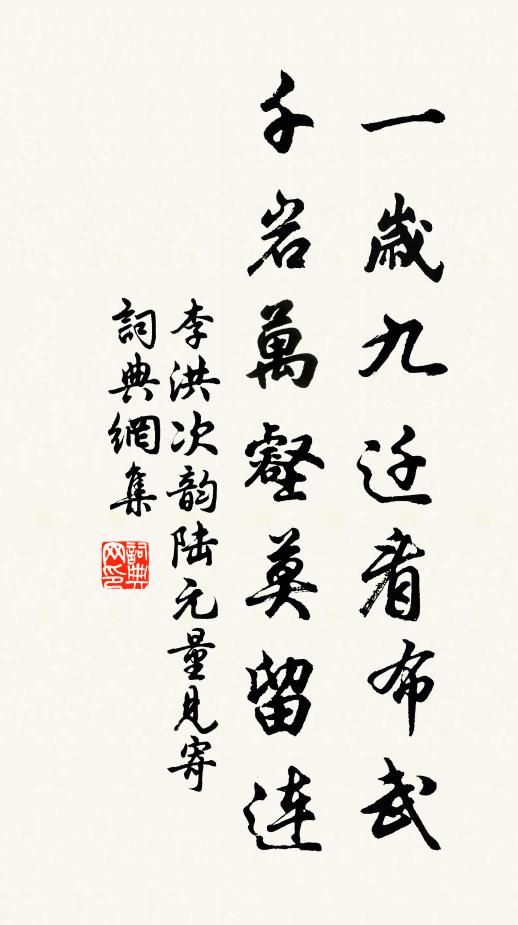 一歲九迁看布武
千岩萬壑莫留連
李洪次韵陆元量見寄
詞典網集
詞典网印